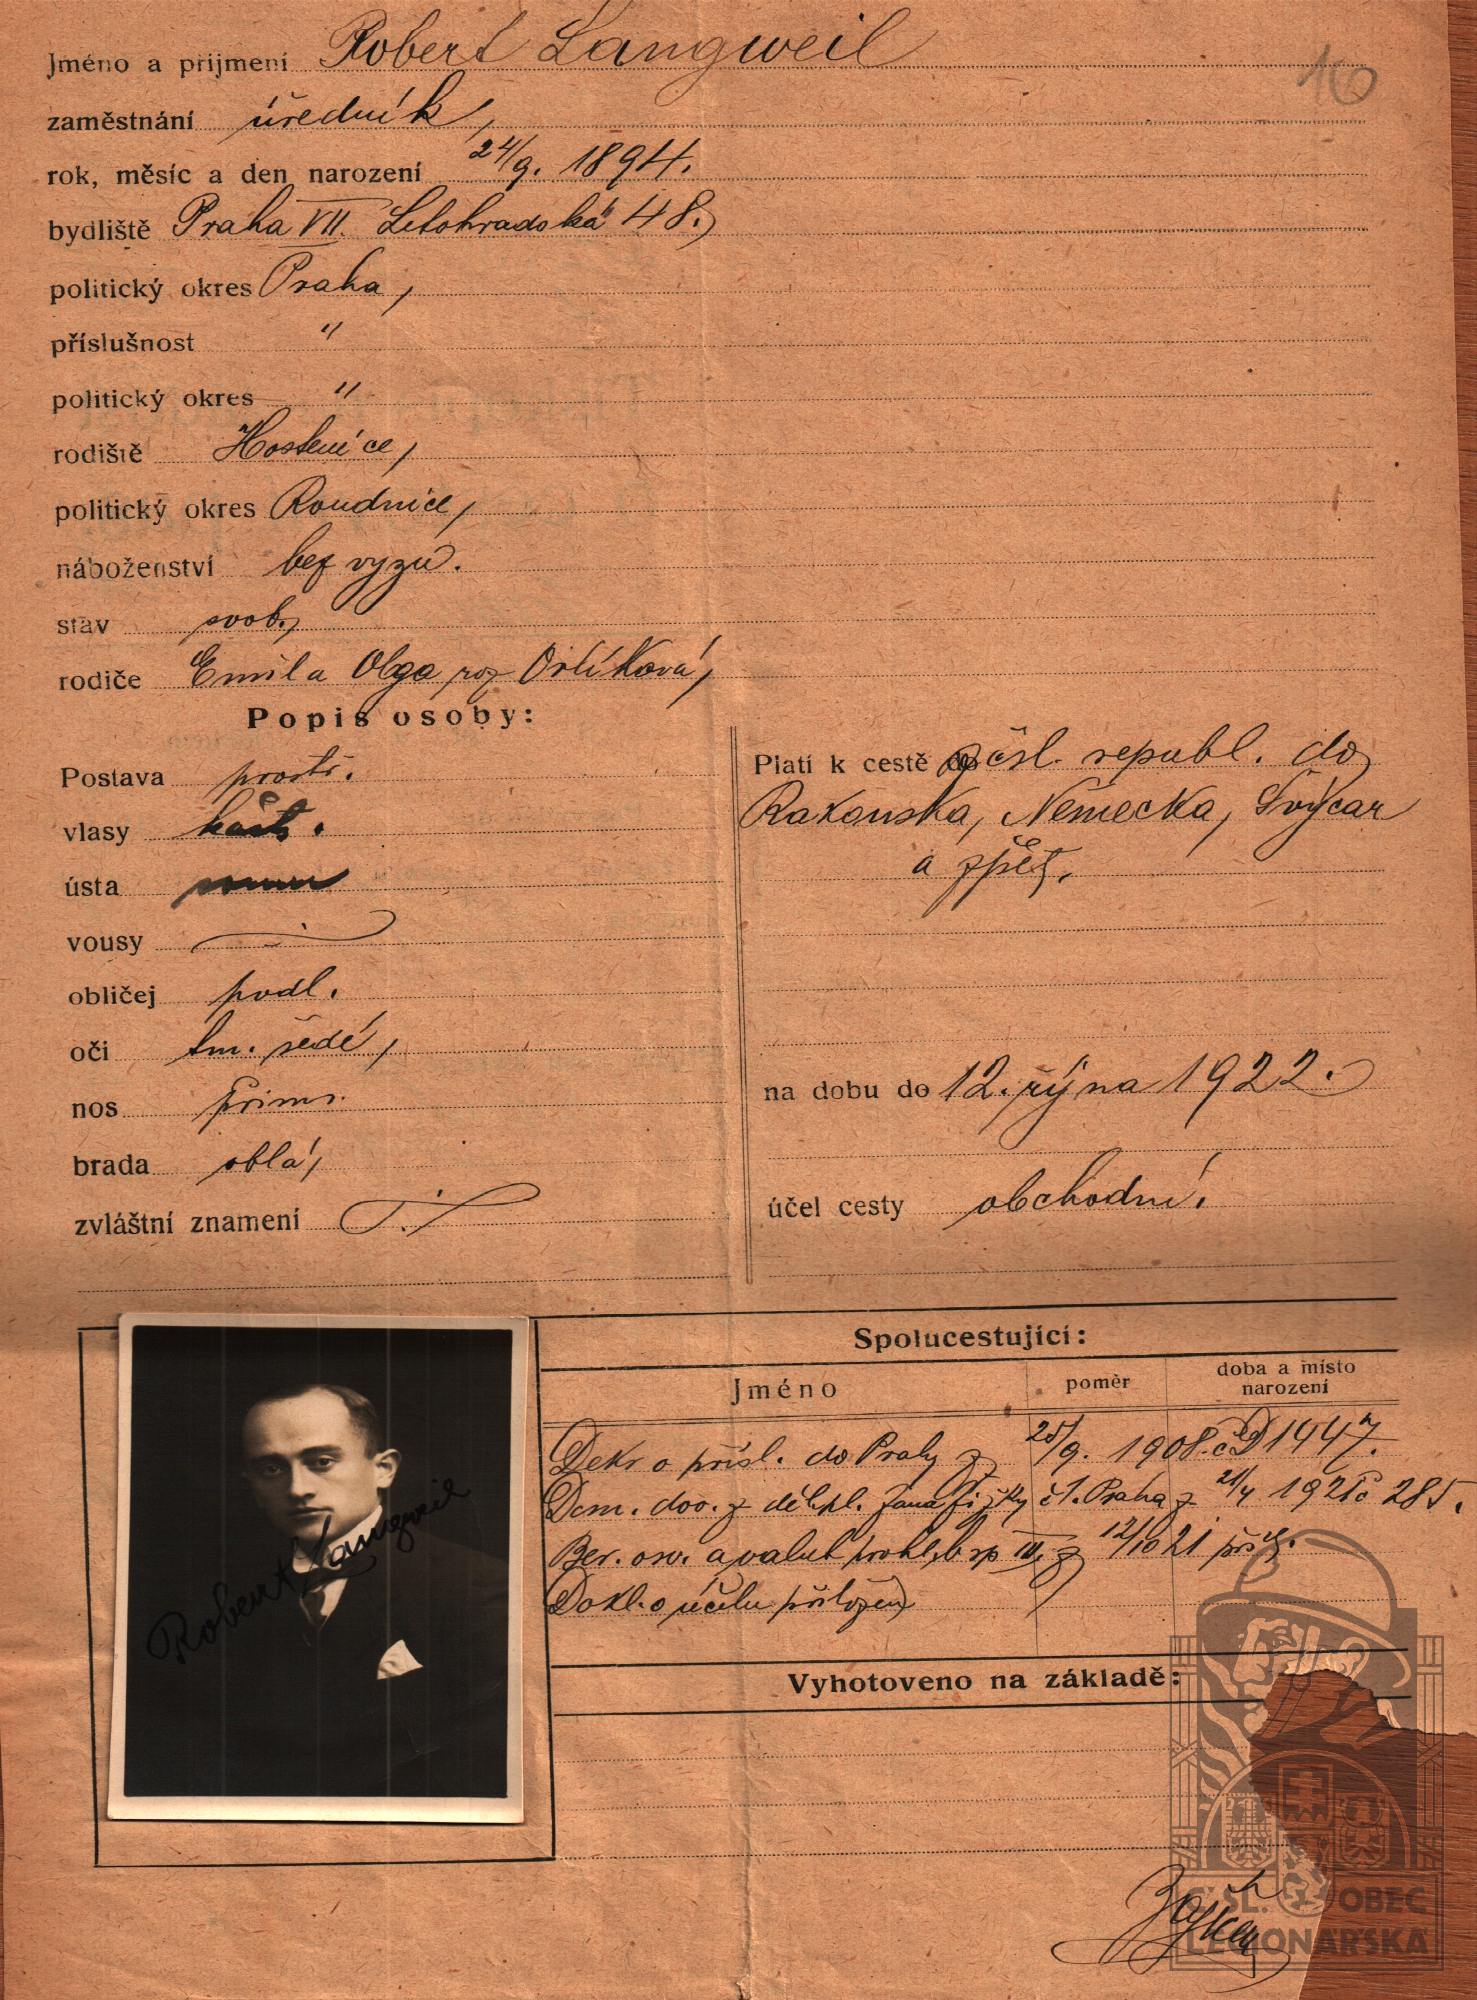 Jméno a příjmení Robert Langweil
10
zaměstnání úředník,
rok, měsíc a den narození 24/9. 1894.
bydliště Praha VII. Letohradská 48.
politický okres Praha,
příslušnost "
politický okres "
rodiště Hostenice,
politický okres Roudnice,
náboženství bez vyzn.
stav svob.,
rodiče Emil a Olga roz Orlíková,
Popis osoby:
Postava prostř.
vlasy
ústa
vousy
obličej podl.
oči tm. šedé,
nos přim.
brada oblá,
zvláštní znamení
Platí k cestě do z čsl. republ. do
Rakouska, Německa, Švýcar
a zpět.
na dobu do 12. října 1922.
účel cesty obchodní.
Spolucestující:
Jméno poměr doba a místo narození
Dekr o přísl. do Prahy z 25/9. 1908. č D 1447.
Dom. dov. z děl. pl. Jana Žižky č 1. Praha z 21/4 1921 č 285.
Ber. osv. a valut prohl. b sp III. z 12/10 21 přil.
Dokl. o účelu přiložen
Vyhotoveno na základě:
Robert Langweil
ČSL. OBEC
LEGIONÁŘSKÁ